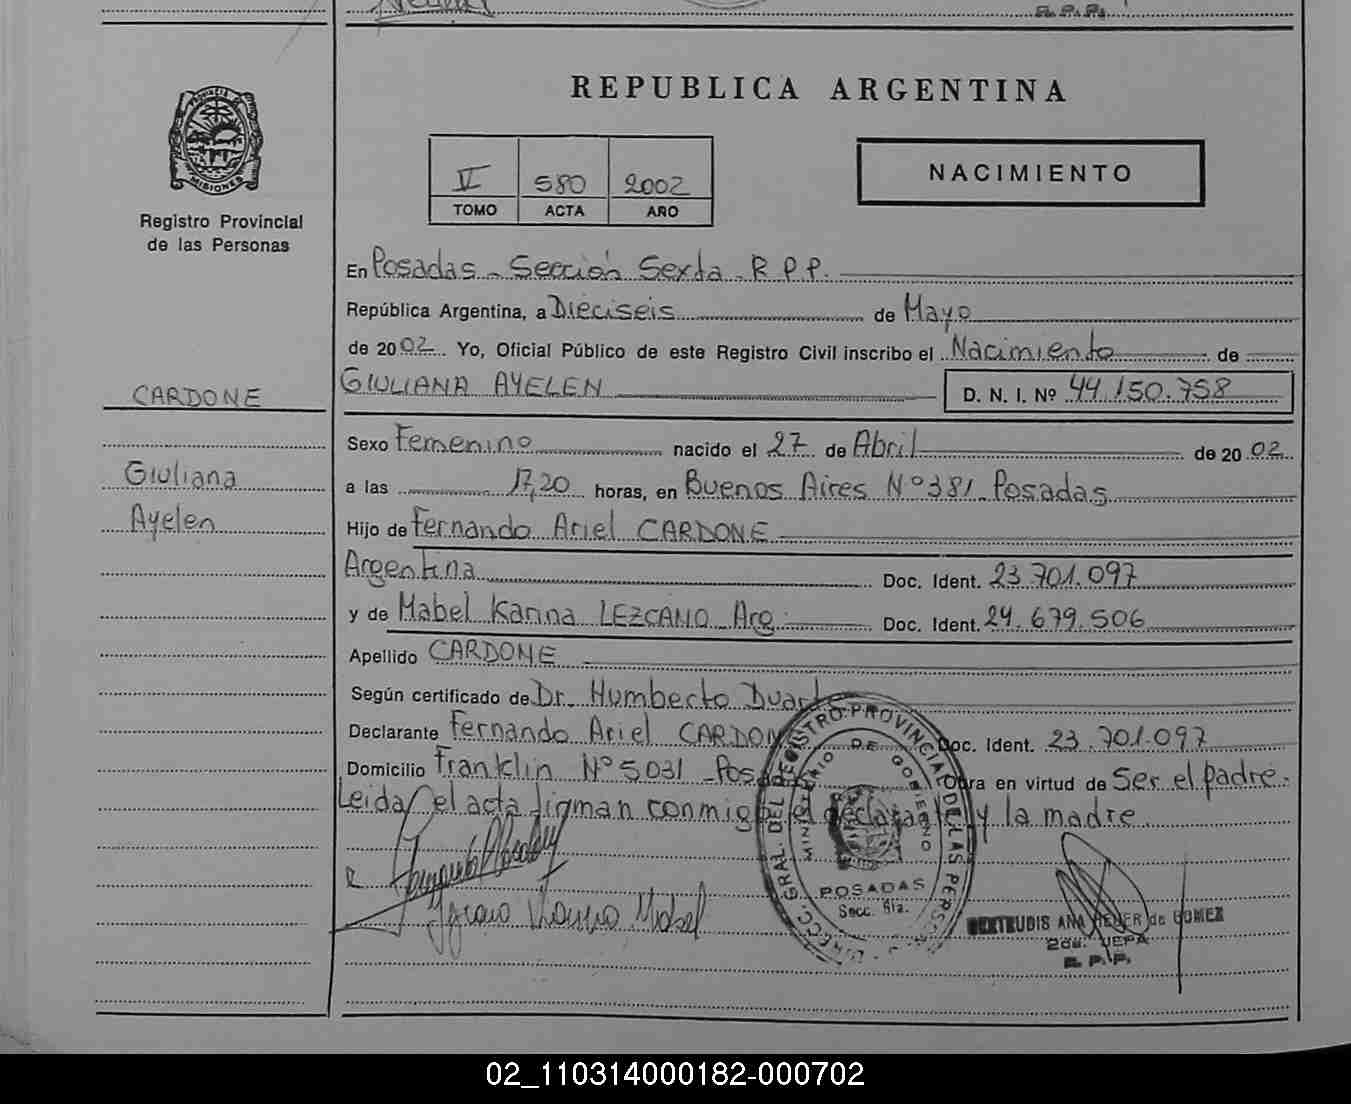 R.P.P.
PROVINCIA DE
MISIONES
Registro Provincial
de las Personas
REPUBLICA ARGENTINA
VI 580 2002
TOMO ACTA AÑO
NACIMIENTO
En Posadas - Sección Sexta. R.P.P.
República Argentina, a Dieciseis de Mayo
de 2002 Yo, Oficial Público de este Registro Civil inscribo el Nacimiento de
GIULIANA AYELEN D. N. I. Nº 44.150.758
CARDONE
Giuliana
Ayelen
Sexo Femenino nacido el 27 de Abril de 2002
a las 17,20 horas, en Buenos Aires Nº 381 - Posadas
Hijo de Fernando Ariel CARDONE
Argentina Doc. Ident. 23.701.097
y de Mabel Karina LEZCANO Arg. Doc. Ident. 24.679.506
Apellido CARDONE
Según certificado de Dr. Humberto Duarte
Declarante Fernando Ariel CARDONE Doc. Ident. 23.701.097
Domicilio Franklin Nº 5031 - Posadas Obra en virtud de Ser el padre.
Leida el acta firman conmigo el declarante y la madre
DIRECC. GRAL. DEL REGISTRO PROVINCIAL DE LAS PERSONAS
MINISTERIO DE GOBIERNO
POSADAS
Secc. 6ta.
GERTRUDIS ANA de GOMEZ
R.P.P.
02_110314000182-000702